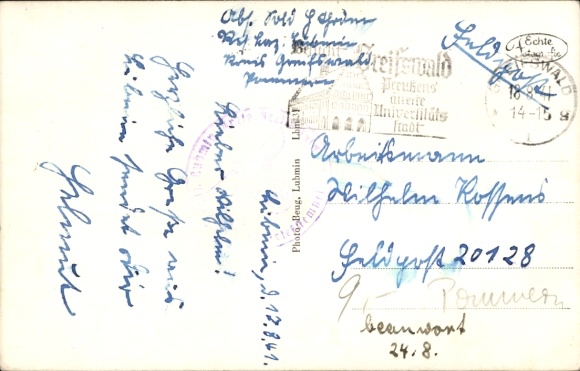 Abs. Sold H Thröm
Res. Laz. Lubmin
Kreis Greifswald
Pommern
Feldpost
Echte
Photographie
Greifswald
Preußens
älteste
Universitäts
stadt
GREIFSWALD
18.8.41
14-15
Lubmin, d. 17.8.41.
Lieber Wilhelm!
Herzliche Grüße aus
Lubmin sendet dir
Helmut
Photo-Beug, Lubmin
Arbeitsmann
Wilhelm Kossens
Feldpost 20128
9,- Pommern
beanwort
24.8.